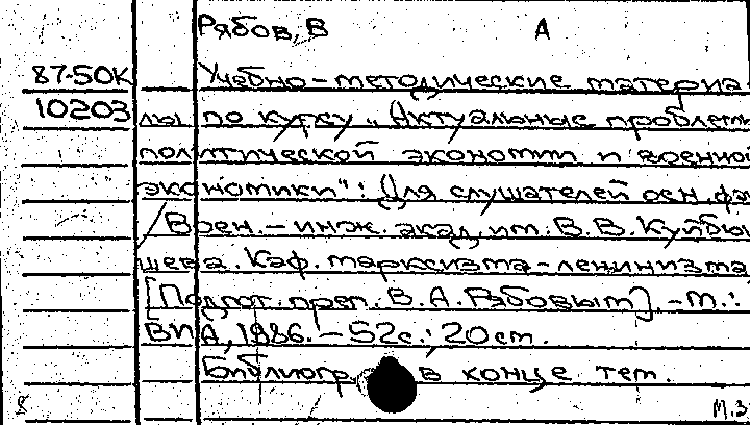 Рябов, В А
87-50К Учебно-методические материа
10203 лы по курсу „Актуальные проблемы
политической экономии и военной
экономики": Для слушателей осн. фак
/Воен.-инж. акад. им. В.В. Куйбы
шева. Каф. марксизма-ленинизма
[Подгот. преп. В.А. Рябовым]. -М.:
ВИА, 1986. - 52с.; 20см.
Библиогр. в конце тем.
М.З